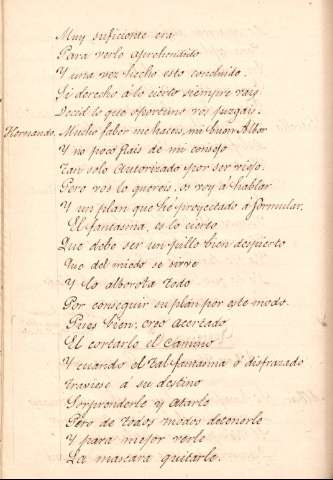 Muy suficiente era
Para verlo aprehendido
Y una vez hecho esto concluido.
Si derecho á lo cierto siempre vais
Decid lo que oportuno vos juzgais.
Hernando. Mucho fabor me haceis, mi buen Albar
Y no poco fiais de mi consejo
Tan solo autorizado por ser viejo.
Pero vos lo quereis, os voy á hablar
Y un plan que hé proyectado á formular.
El fantasma, es lo cierto
Que debe ser un pillo bien despierto
Que del miedo se sirve
Y lo alborota todo
Por conseguir su plan por este modo.
Pues bien; creo acertado
El cortarle el camino
Y cuando el tal fantasma ó disfrazado
Traviese á su destino
Sorprenderle y atarle
Pero de todos modos detenerle
Y para mejor verle
La mascara quitarle.